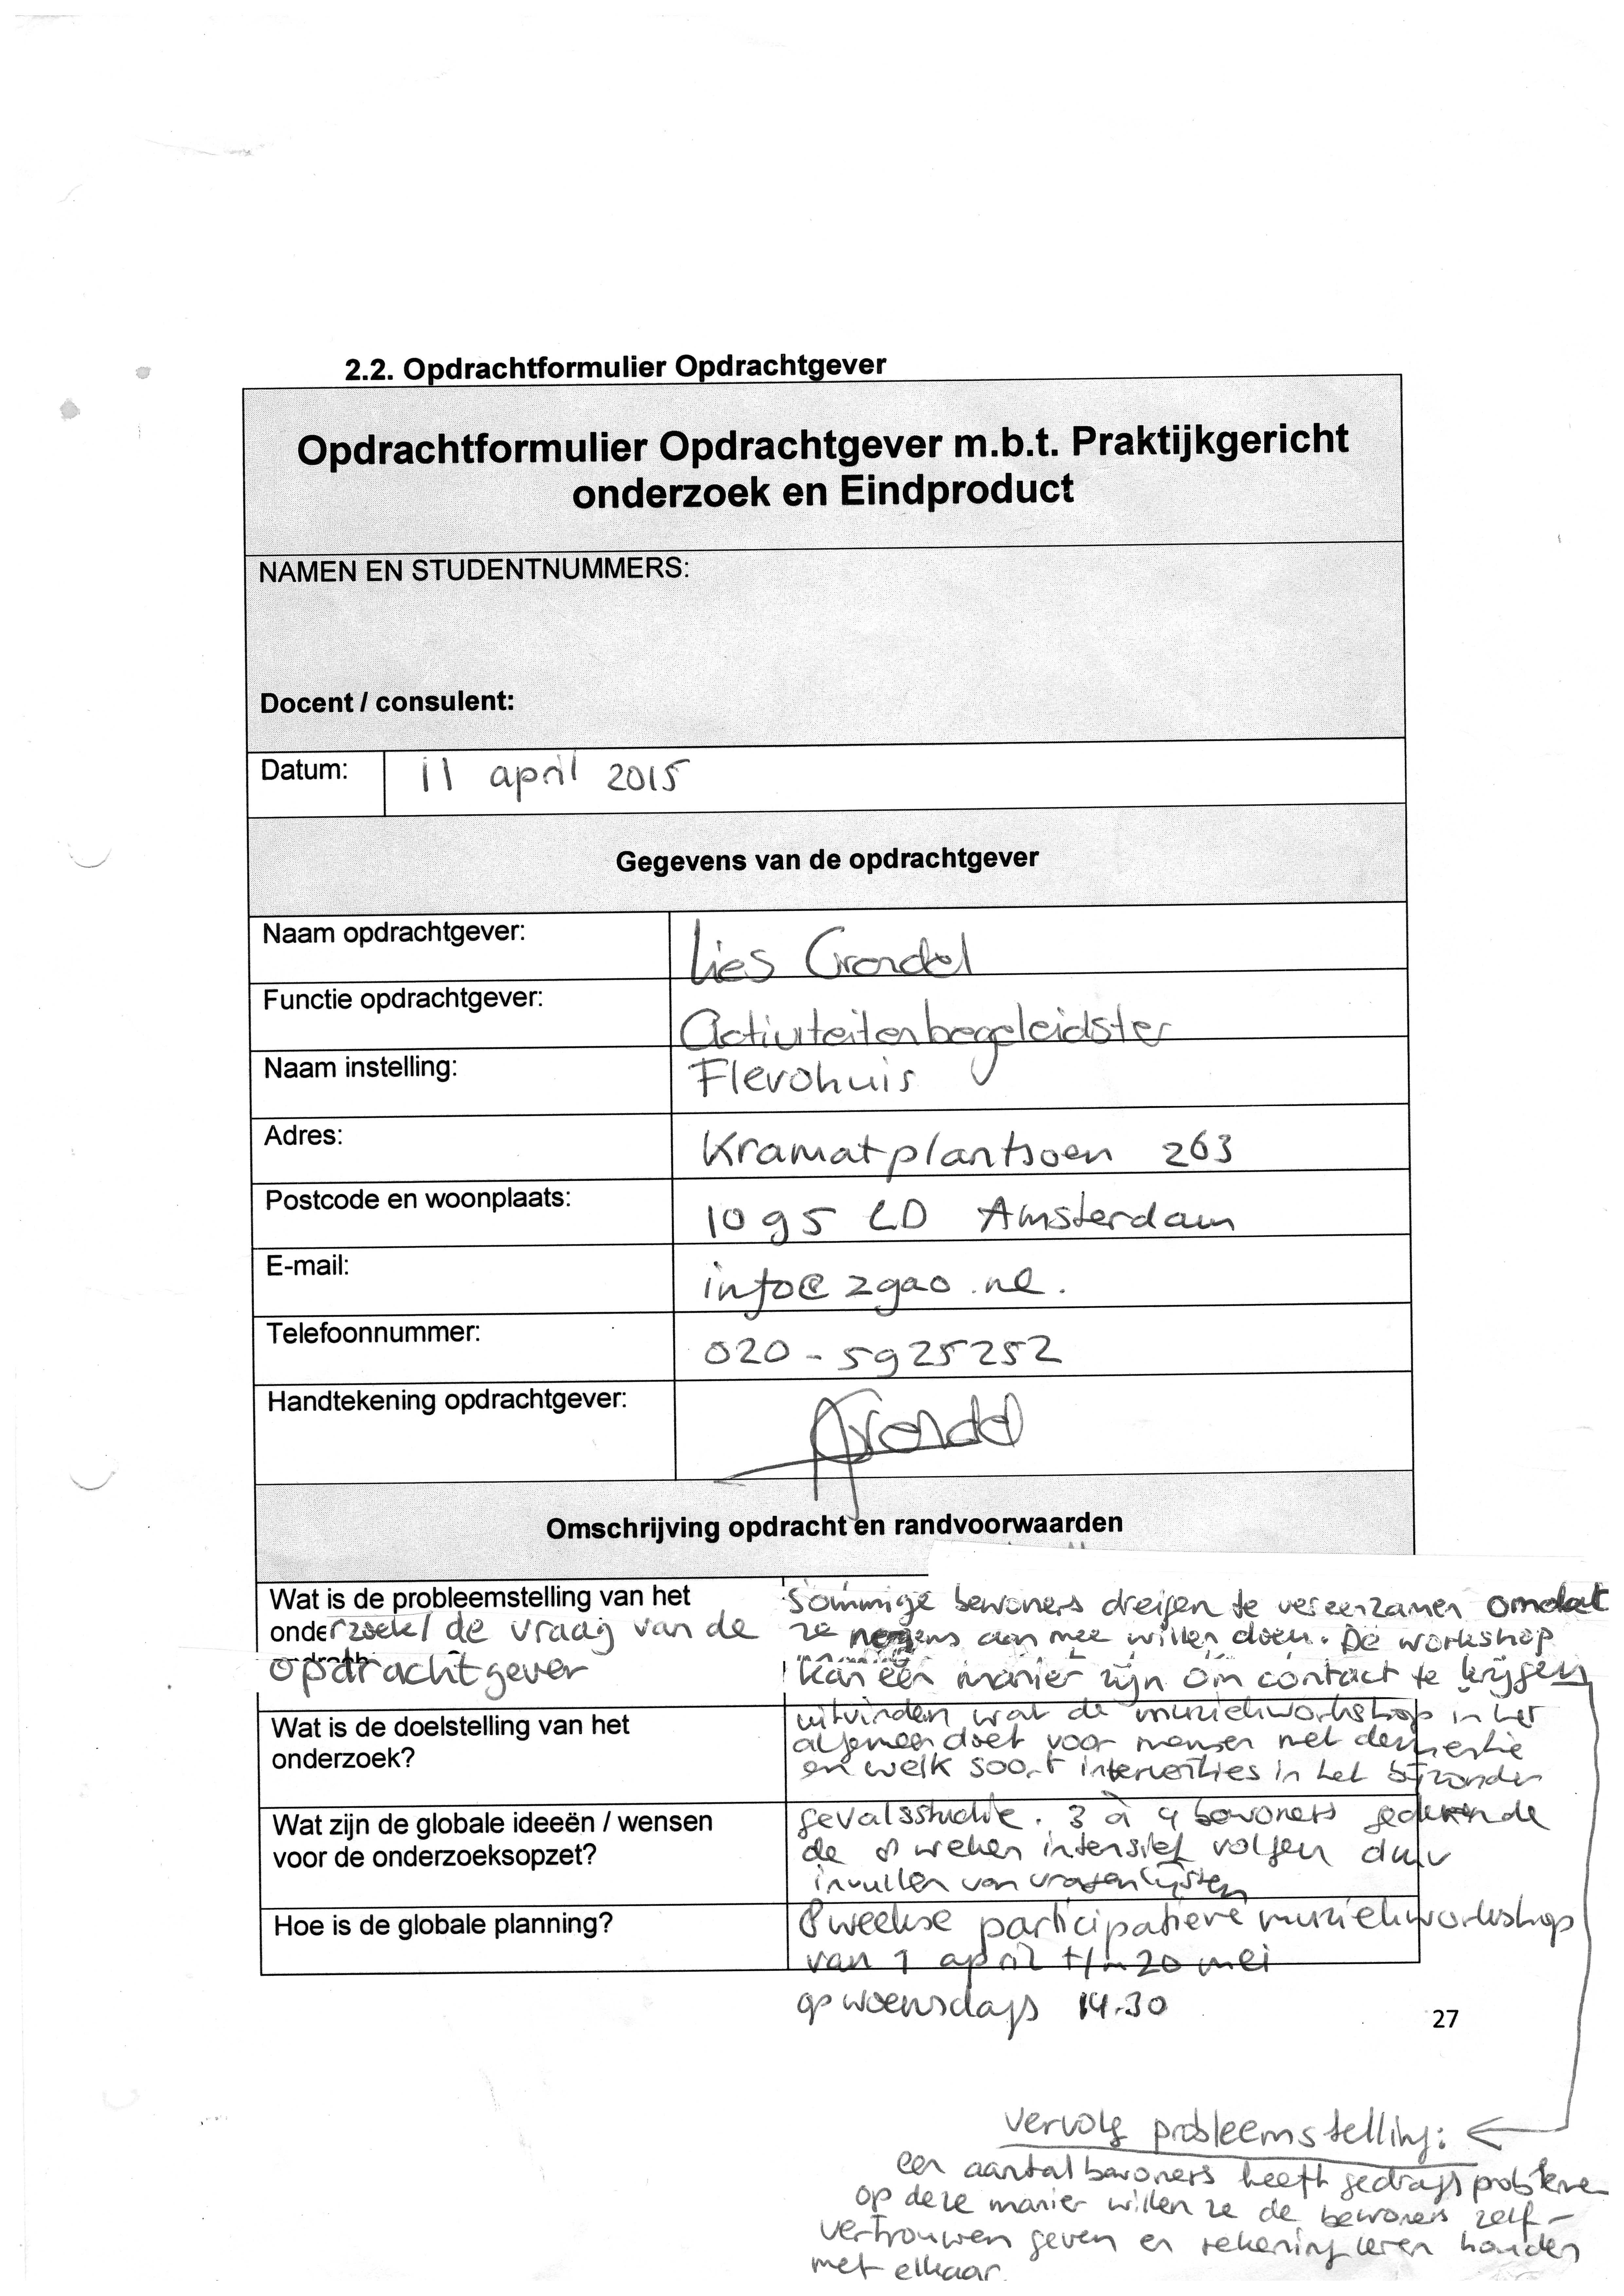 2.2. Opdrachtformulier Opdrachtgever
Opdrachtformulier Opdrachtgever m.b.t. Praktijkgericht
onderzoek en Eindproduct
NAMEN EN STUDENTNUMMERS:
Docent / consulent:
Datum: 11 april 2015
Gegevens van de opdrachtgever
Naam opdrachtgever: Lies Grondel
Functie opdrachtgever: Activiteitenbegeleidster
Naam instelling: Flevohuis
Adres: Kramatplantsoen 263
Postcode en woonplaats: 1095 LD Amsterdam
E-mail: info@zgao.nl.
Telefoonnummer: 020-5925252
Handtekening opdrachtgever: Grondel
Omschrijving opdracht en randvoorwaarden
Wat is de probleemstelling van het
onderzoek/ de vraag van de
opdrachtgever
Sommige bewoners dreigen te vereenzamen omdat
ze nergens aan mee willen doen. De workshop
kan een manier zijn om contact te krijgen
Wat is de doelstelling van het
onderzoek?
uitvinden wat de muziekworkshop in het
algemeen doet voor mensen met dementie
en welk soort interventies in het bijzonder
Wat zijn de globale ideeën / wensen
voor de onderzoeksopzet?
gevalsstudie. 3 à 4 bewoners gedurende
de 8 weken intensief volgen d.m.v
invullen van vragenlijsten
Hoe is de globale planning?
8 weekse participatieve muziekworkshop
van 1 april t/m 20 mei
op woensdags 14.30
27
vervolg probleemstelling:
een aantal bewoners heeft gedragsprobleme
op deze manier willen ze de bewoners zelf-
vertrouwen geven en rekening leren houden
met elkaar.